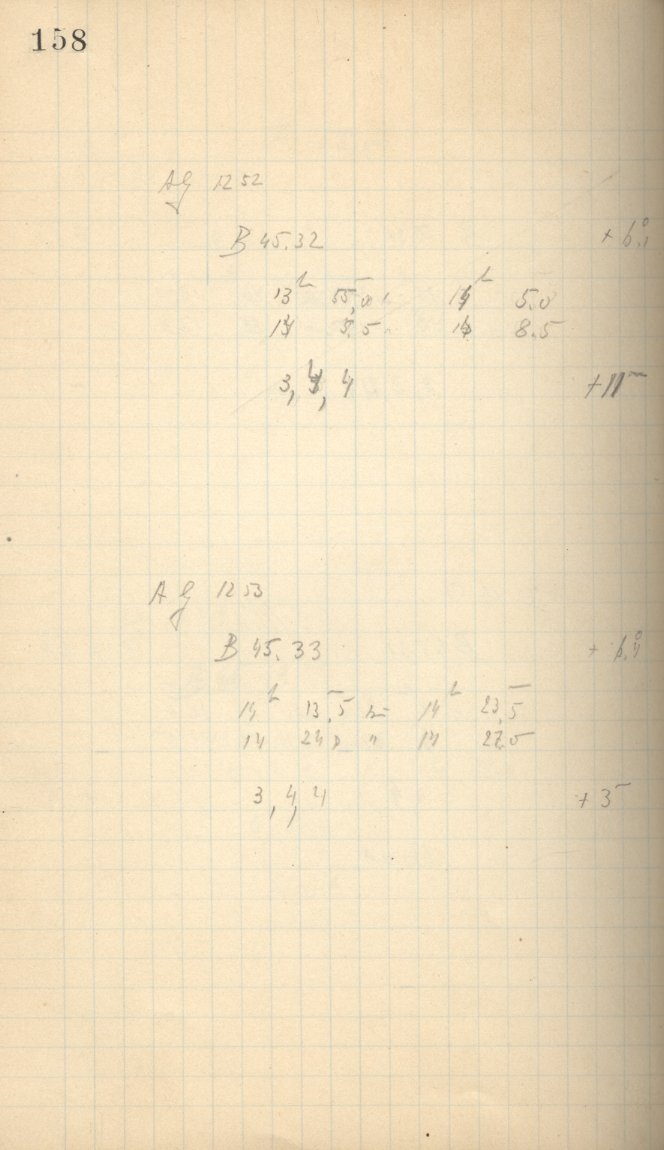 158
AG 1252
B 45.32 +6.°1
13h 55,0 14h 5.0
14 5.5 14 8.5
3, 4, 4 +11m
AG 1253
B 45.33
14h 13,5 14h 23,5
14 24 " 14 27.0
3, 4, 4 +3